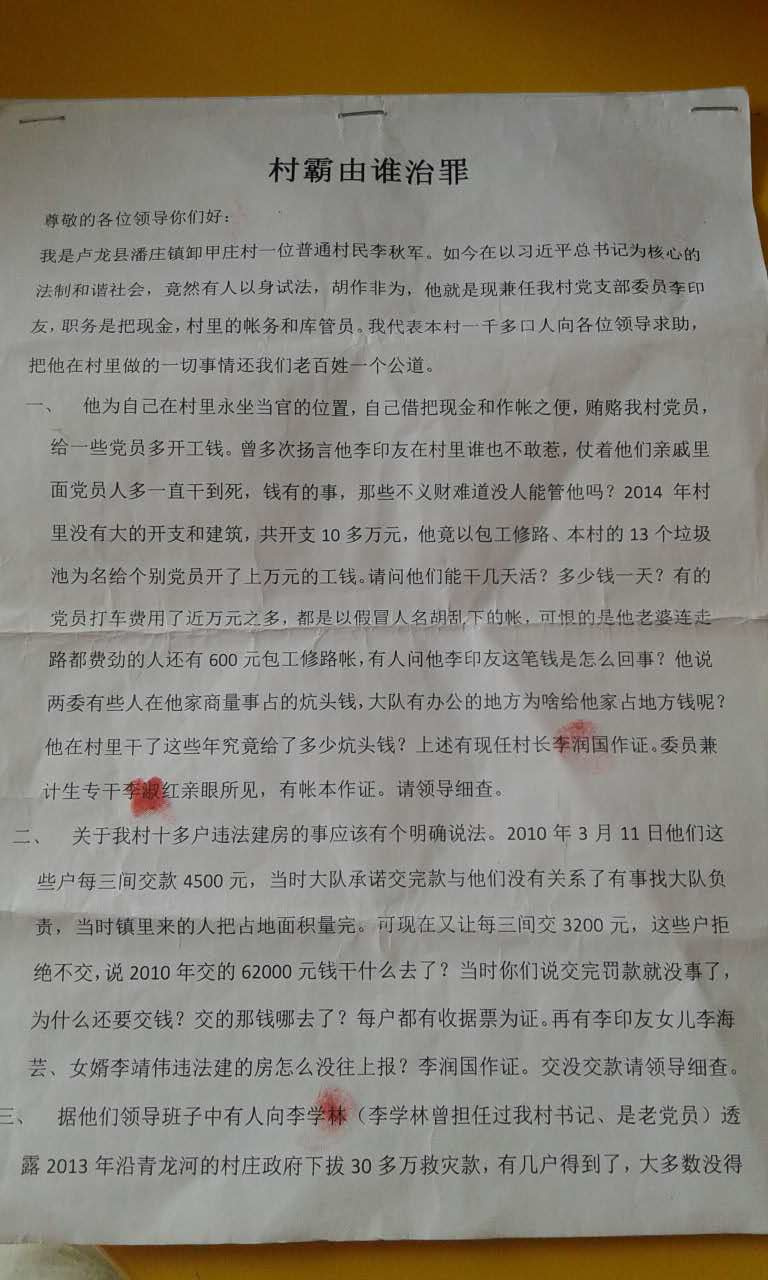 村霸由谁治罪
尊敬的各位领导你们好:
我是卢龙县潘庄镇卸甲庄村一位普通村民李秋军。如今在以习近平总书记为核心的
法制和谐社会，竟然有人以身试法，胡作非为，他就是现兼任我村党支部委员李印
友，职务是把现金，村里的帐务和库管员。我代表本村一千多口人向各位领导求助，
把他在村里做的一切事情还我们老百姓一个公道。
一、 他为自己在村里永坐当官的位置，自己借把现金和作帐之便，贿赂我村党员，
给一些党员多开工钱。曾多次扬言他李印友在村里谁也不敢惹，仗着他们亲戚里
面党员人多一直干到死，钱有的事，那些不义财难道没人能管他吗？2014 年村
里没有大的开支和建筑，共开支 10 多万元，他竟以包工修路、本村的 13 个垃圾
池为名给个别党员开了上万元的工钱。请问他们能干几天活？多少钱一天？有的
党员打车费用了近万元之多，都是以假冒人名胡乱下的帐，可恨的是他老婆连走
路都费劲的人还有 600 元包工修路帐，有人问他李印友这笔钱是怎么回事？他说
两委有些人在他家商量事占的炕头钱，大队有办公的地方为啥给他家占地方钱呢？
他在村里干了这些年究竟给了多少炕头钱？上述有现任村长李润国作证。委员兼
计生专干李淑红亲眼所见，有帐本作证。请领导细查。
二、 关于我村十多户违法建房的事应该有个明确说法。2010 年 3 月 11 日他们这
些户每三间交款 4500 元，当时大队承诺交完款与他们没有关系了有事找大队负
责，当时镇里来的人把占地面积量完。可现在又让每三间交 3200 元，这些户拒
绝不交，说 2010 年交的 62000 元钱干什么去了？当时你们说交完罚款就没事了，
为什么还要交钱？交的那钱哪去了？每户都有收据票为证。再有李印友女儿李海
芸、女婿李靖伟违法建的房怎么没往上报？李润国作证。交没交款请领导细查。
三、 据他们领导班子中有人向李学林（李学林曾担任过我村书记、是老党员）透
露 2013 年沿青龙河的村庄政府下拔 30 多万救灾款，有几户得到了，大多数没得